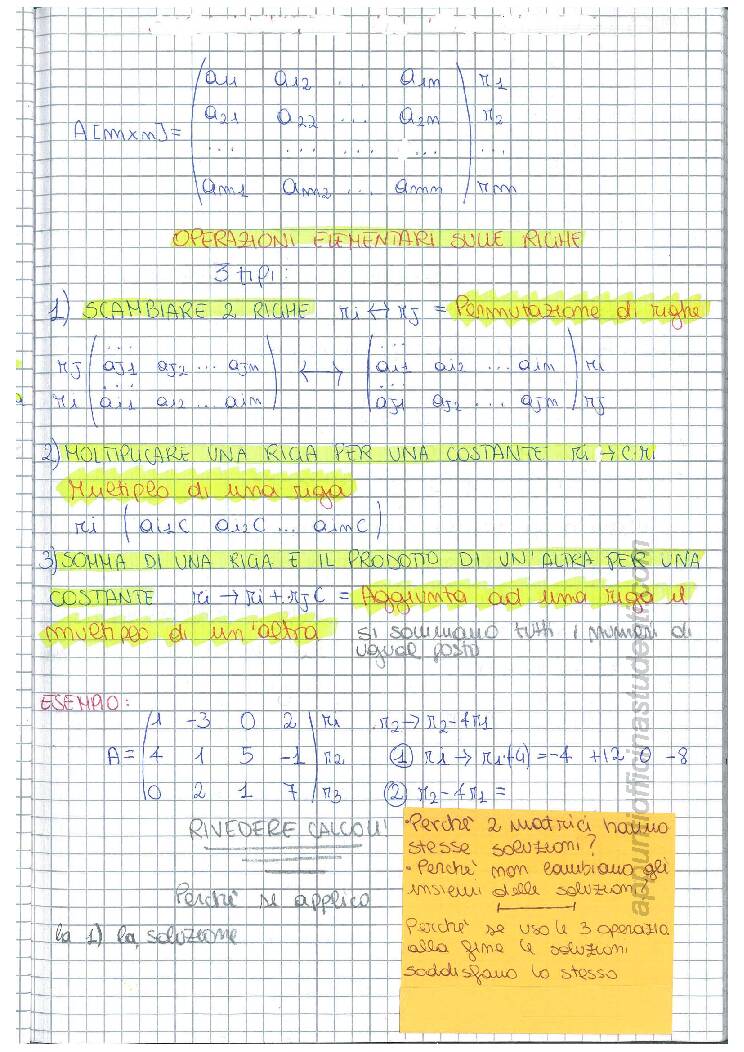 a11 a12 ... a1n r1
a21 a22 ... a2n r2
A[mxn]=
... ... ... ... ...
am1 am2 ... amn rm
OPERAZIONI ELEMENTARI SULLE RIGHE
3 tipi:
1) SCAMBIARE 2 RIGHE ri ↔ rj = Permutazione di righe
... ...
rj aj1 aj2 ... ajn ↔ ai1 ai2 ... ain ri
... ...
ri ai1 ai2 ... ain aj1 aj2 ... ajn rj
2) MOLTIPLICARE UNA RIGA PER UNA COSTANTE ri → c·ri
Multiplo di una riga
ri (ai1C ai2C ... ainC)
3) SOMMA DI UNA RIGA E IL PRODOTTO DI UN'ALTRA PER UNA
COSTANTE ri → ri + rjC = Aggiunta ad una riga il
multiplo di un'altra si sommano tutti i numeri di
ugual posto
ESEMPIO:
1 -3 0 2 r1 r2 → r2-4r1
A= 4 1 5 -1 r2 ① r1 → r1·(-4) = -4 +12 0 -8
0 2 1 7 r3 ② r2-4r1 =
RIVEDERE CALCOLI
Perché se applico
la 1) la soluzione
• Perché 2 matrici hanno
stesse soluzioni?
• Perché non cambiano gli
insiemi delle soluzioni
Perché se uso le 3 operazio
alla fine le soluzioni
soddisfano lo stesso
appuntiofficinastudenti.com